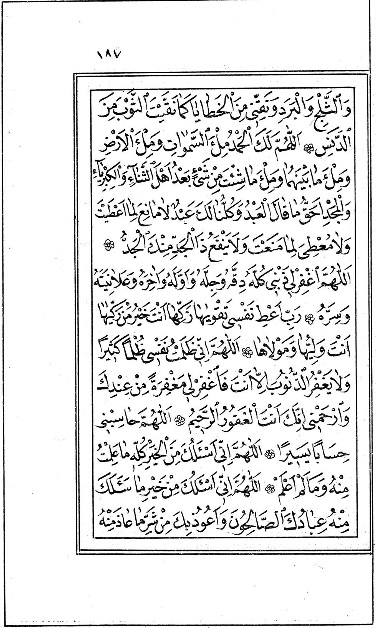 ١٨٧
وَالثَّلْجِ وَالْبَرَدِ وَنَقِّنِي مِنَ الْخَطَايَا كَمَا نَقَّيْتَ الثَّوْبَ مِنَ
الدَّنَسِ ۞ اَللّٰهُمَّ لَكَ الْحَمْدُ مِلْءَ السَّمٰوَاتِ وَمِلْءَ الْاَرْضِ
وَمِلْءَ مَا بَيْنَهُمَا وَمِلْءَ مَا شِئْتَ مِنْ شَيْءٍ بَعْدُ اَهْلَ الثَّنَاءِ وَالْكِبْرِيَاءِ
وَالْمَجْدِ اَحَقُّ مَا قَالَ الْعَبْدُ وَكُلُّنَا لَكَ عَبْدٌ لَا مَانِعَ لِمَا اَعْطَيْتَ
وَلَا مُعْطِيَ لِمَا مَنَعْتَ وَلَا يَنْفَعُ ذَا الْجَدِّ مِنْكَ الْجَدُّ ۞
اَللّٰهُمَّ اغْفِرْلِي ذَنْبِي كُلَّهُ دِقَّهُ وَجِلَّهُ وَاَوَّلَهُ وَاٰخِرَهُ وَعَلَانِيَتَهُ
وَسِرَّهُ ۞ رَبِّ اَعْطِ نَفْسِي تَقْوٰيهَا زَكِّهَا اَنْتَ خَيْرُ مَنْ زَكّٰيهَا
اَنْتَ وَلِيُّهَا وَمَوْلَاهَا ۞ اَللّٰهُمَّ اِنِّي ظَلَمْتُ نَفْسِي ظُلْمًا كَثِيرًا
وَلَا يَغْفِرُ الذُّنُوبَ اِلَّا اَنْتَ فَاغْفِرْلِي مَغْفِرَةً مِنْ عِنْدِكَ
وَارْحَمْنِي اِنَّكَ اَنْتَ الْغَفُورُ الرَّحِيمُ ۞ اَللّٰهُمَّ حَاسِبْنِي
حِسَابًا يَسِيرًا ۞ اَللّٰهُمَّ اِنِّي اَسْئَلُكَ مِنَ الْخَيْرِ كُلِّهِ مَا عَلِمْتُ
مِنْهُ وَمَا لَمْ اَعْلَمْ ۞ اَللّٰهُمَّ اِنِّي اَسْئَلُكَ مِنْ خَيْرِ مَا سَئَلَكَ
مِنْهُ عِبَادُكَ الصَّالِحُونَ وَاَعُوذُ بِكَ مِنْ شَرِّ مَا عَاذَ مِنْهُ